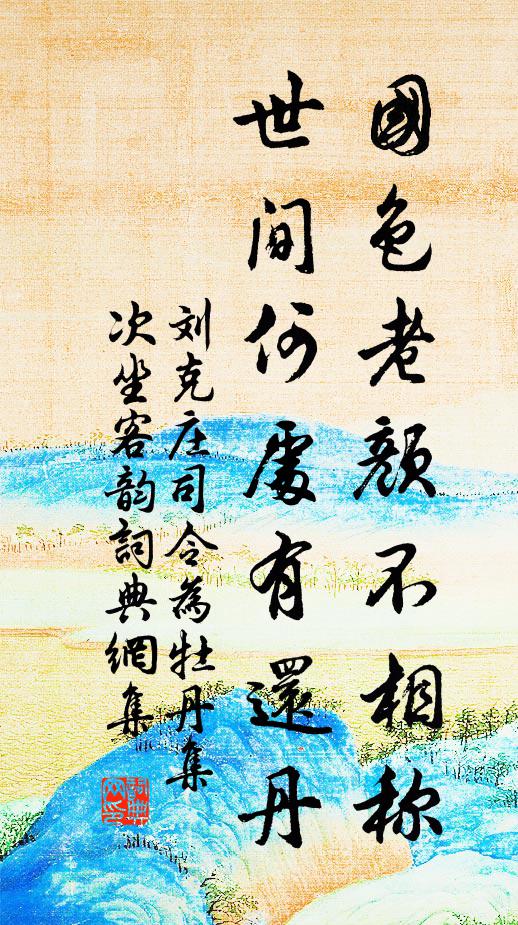 國色老顔不相称
世间何處有還丹
刘克庄司令為牡丹集
次坐客韵詞典網集
詞典